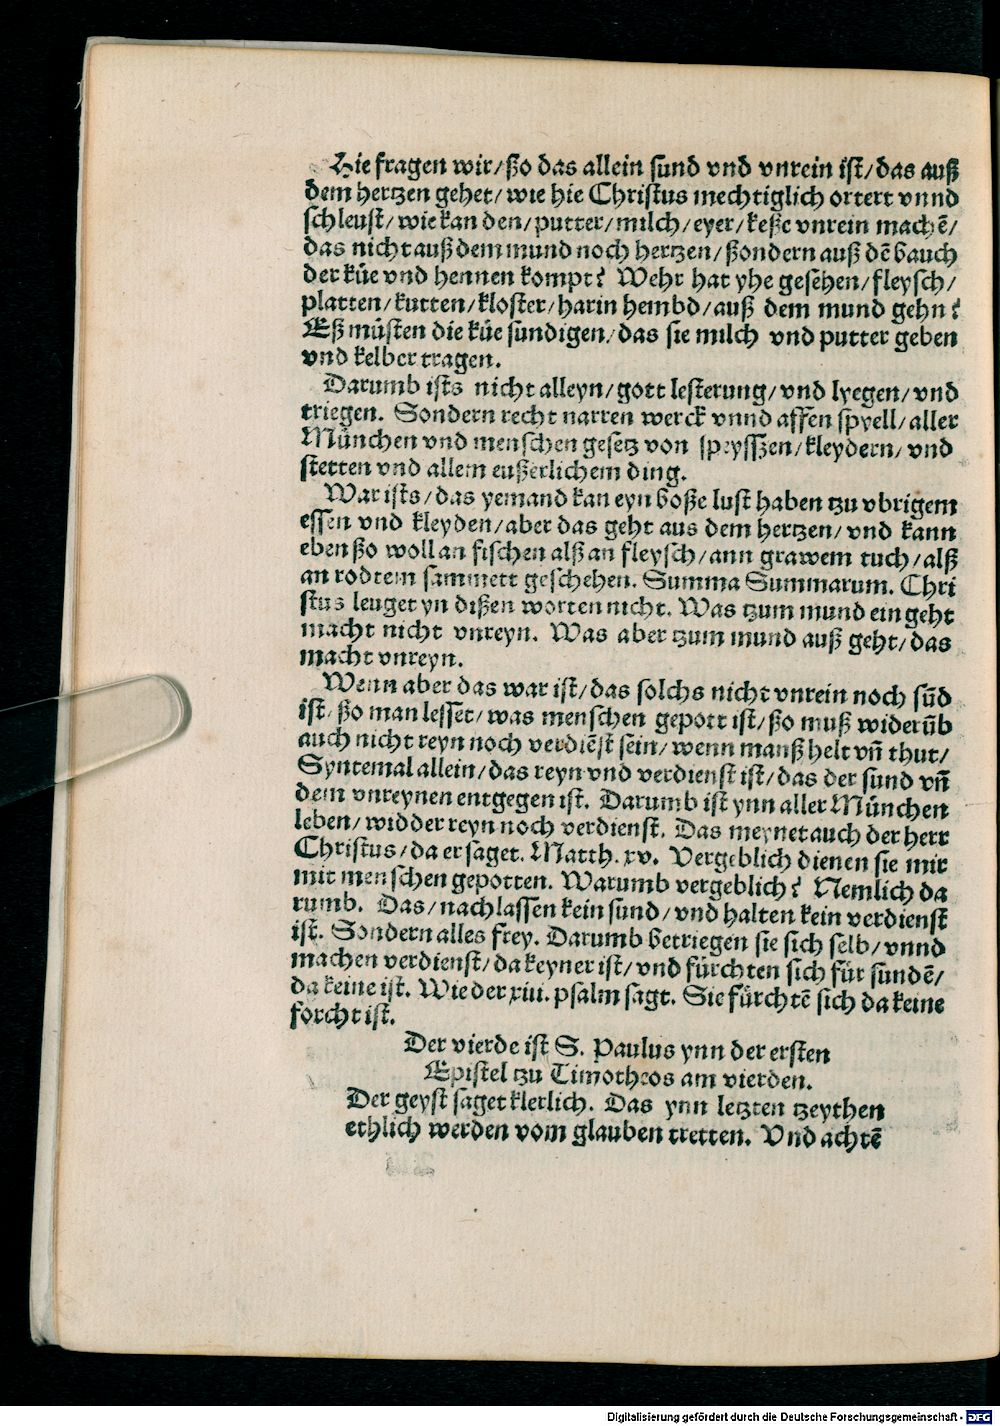 Hie fragen wir/ ßo das allein sund vnd vnrein ist/ das auß
dem hertzen gehet/ wie hie Christus mechtiglich ortert vnnd
schleust/ wie kan den/ putter/ milch/ eyer/ keße vnrein machē/
das nicht auß dem mund noch hertzen/ ßondern auß dē bauch
der küe vnd hennen kompt? Wehr hat yhe gesehen/ fleysch/
platten/ kutten/ kloster/ harin hembd/ auß dem mund gehn?
Eß müsten die küe sundigen/ das sie milch vnd putter geben
vnd kelber tragen.
Darumb ists nicht alleyn/ gott lesterung/ vnd lyegen/ vnd
triegen. Sondern recht narren werck vnnd affen spyell/ aller
München vnd menschen gesetz von speysszen/ kleydern/ vnd
stetten vnd allem eußerlichem ding.
War ists/ das yemand kan eyn boße lust haben tzu vbrigem
essen vnd kleyden/ aber das geht aus dem hertzen/ vnd kann
eben ßo woll an fischen alß an fleysch/ ann grawem tuch/ alß
an rodtem sammett geschehen. Summa Summarum. Chri
stus leuget yn dißen worten nicht. Was tzum mund ein geht
macht nicht vnreyn. Was aber tzum mund auß geht/ das
macht vnreyn.
Wenn aber das war ist/ das solchs nicht vnrein noch sūd
ist/ ßo man lesset/ was menschen gepott ist/ ßo muß widerūb
auch nicht reyn noch verdiēst sein/ wenn manß helt vn̄ thut/
Syntemal allein/ das reyn vnd verdienst ist/ das der sund vn̄
dem vnreynen entgegen ist. Darumb ist ynn aller München
leben/ widder reyn noch verdienst. Das meynet auch der herr
Christus/ da er saget. Matth. xv. Vergeblich dienen sie mir
mit menschen gepotten. Warumb vergeblich? Nemlich da
rumb. Das/ nachlassen kein sund/ vnd halten kein verdienst
ist. Sondern alles frey. Darumb betriegen sie sich selb/ vnnd
machen verdienst/ da keyner ist/ vnd fürchten sich für sundē/
da keine ist. Wie der xiii. psalm sagt. Sie fürchtē sich da keine
forcht ist.
Der vierde ist S. Paulus ynn der ersten
Epistel tzu Timotheos am vierden.
Der geyst saget klerlich. Das ynn letzten tzeythen
ethlich werden vom glauben tretten. Vnd achtē
Digitalisierung gefördert durch die Deutsche Forschungsgemeinschaft - DFG